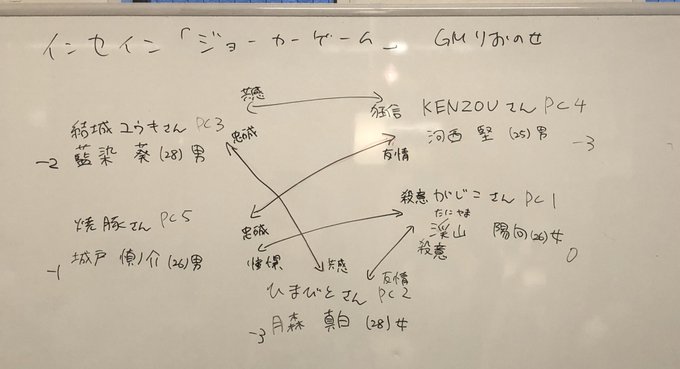 インセイン「ジョーカーゲーム」 GMりおのせ
共感
狂信 KENZOUさん PC4
結城ユウキさん PC3
忠誠
河西 堅 (25) 男
-3
-2 藍染 葵 (28) 男
友情
殺意 がじこさん PC1
たにやま
焼豚さん PC5
忠誠
渓山 陽向 (26) 女
殺意
0
-1 城戸 慎ノ介 (26) 男
憧憬
共感
友情
ひまびとさん PC2
-3 月森 真白 (28) 女